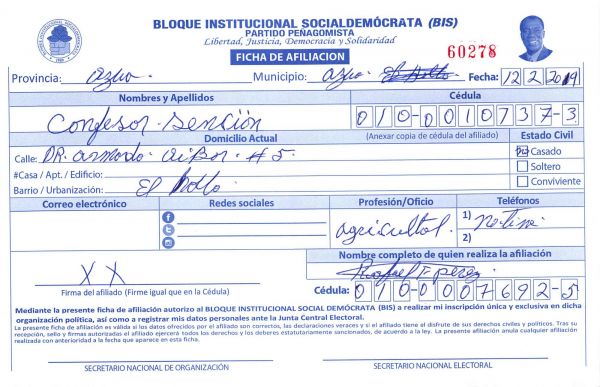 BLOQUE INSTITUCIONAL SOCIALDEMÓCRATA (BIS)
PARTIDO PEÑAGOMISTA
Libertad, Justicia, Democracia y Solidaridad
FICHA DE AFILIACION
60278
Provincia: Azua. Municipio: Azua Fecha: 12 2 2019
Nombres y Apellidos Cédula
Confesor Sención 010-0010737-3
Domicilio Actual (Anexar copia de cédula del afiliado) Estado Civil
Calle: DR. Armando #5. Casado
#Casa / Apt. / Edificio: Soltero
Barrio / Urbanización: El Conviviente
Correo electrónico Redes sociales Profesión/Oficio Teléfonos
Agricultol. 1) No tiene
2)
Nombre completo de quien realiza la afiliación
X X Rafael T. perez
Firma del afiliado (Firme igual que en la Cédula) Cédula: 010-0007692-5
Mediante la presente ficha de afiliación autorizo al BLOQUE INSTITUCIONAL SOCIAL DEMÓCRATA (BIS) a realizar mi inscripción única y exclusiva en dicha
organización política, así como a registrar mis datos personales ante la Junta Central Electoral.
La presente ficha de afiliación es válida si los datos ofrecidos por el afiliado son correctos, las declaraciones veraces y si el afiliado tiene el disfrute de sus derechos civiles y políticos. Tras su
recepción, sello y firmas autorizadas el afiliado ejercerá todos los derechos y los deberes estatutariamente sancionados, de acuerdo a la ley. La presente afiliación anula cualquier afiliación
realizada con anterioridad a la fecha que aparece en esta ficha.
SECRETARIO NACIONAL DE ORGANIZACIÓN SECRETARIO NACIONAL ELECTORAL